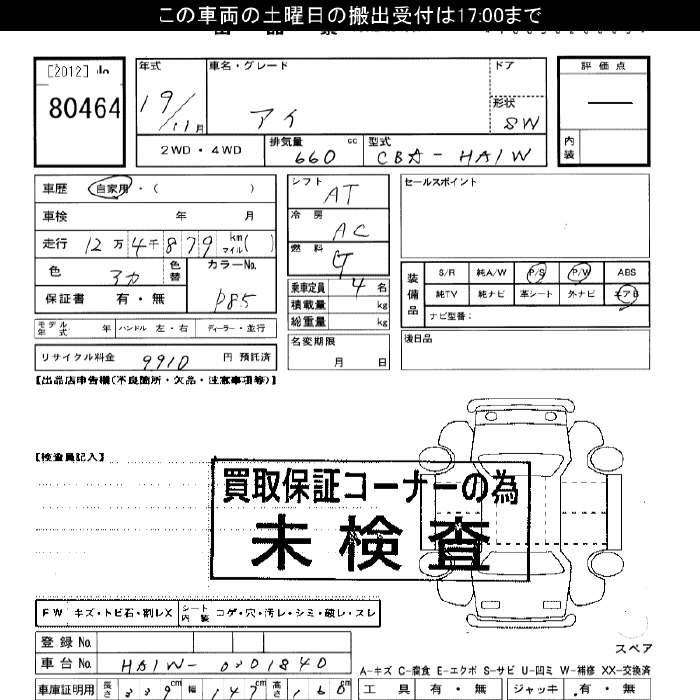 この車両の土曜日の搬出受付は17:00まで
[2012]
80464
年式 車名・グレード ドア 評価点
19/11月 アイ 形状 SW
2WD・4WD 排気量 660 cc 型式 CBA-HA1W 内装
車歴 自家用・( )
車検 年 月
走行 12万4千879 km マイル( )
色 アカ 色替 カラーNo. P85
保証書 有・無
モデル年式 年 ハンドル 左・右 ディーラー・並行
リサイクル料金 9910 円 預託済
シフト AT
冷房 AC
燃料 G
乗車定員 4 名
積載量 kg
総重量 kg
名変期限 月 日
セールスポイント
装備品 S/R 純A/W P/S P/W ABS
純TV 純ナビ 革シート 外ナビ エアB
ナビ型番:
後日品
【出品店申告欄(不良箇所・欠品・注意事項等)】
【検査員記入】
買取保証コーナーの為
未検査
FW キズ・トビ石・割レX シート内装 コゲ・穴・汚レ・シミ・破レ・スレ
登録No.
車台No. HA1W-0301840
スペア
A-キズ C-腐食 E-エクボ S-サビ U-凹ミ W-補修 XX-交換済
車庫証明用 長さ 339cm 幅 147cm 高さ 160cm
工具 有・無 ジャッキ 有・無